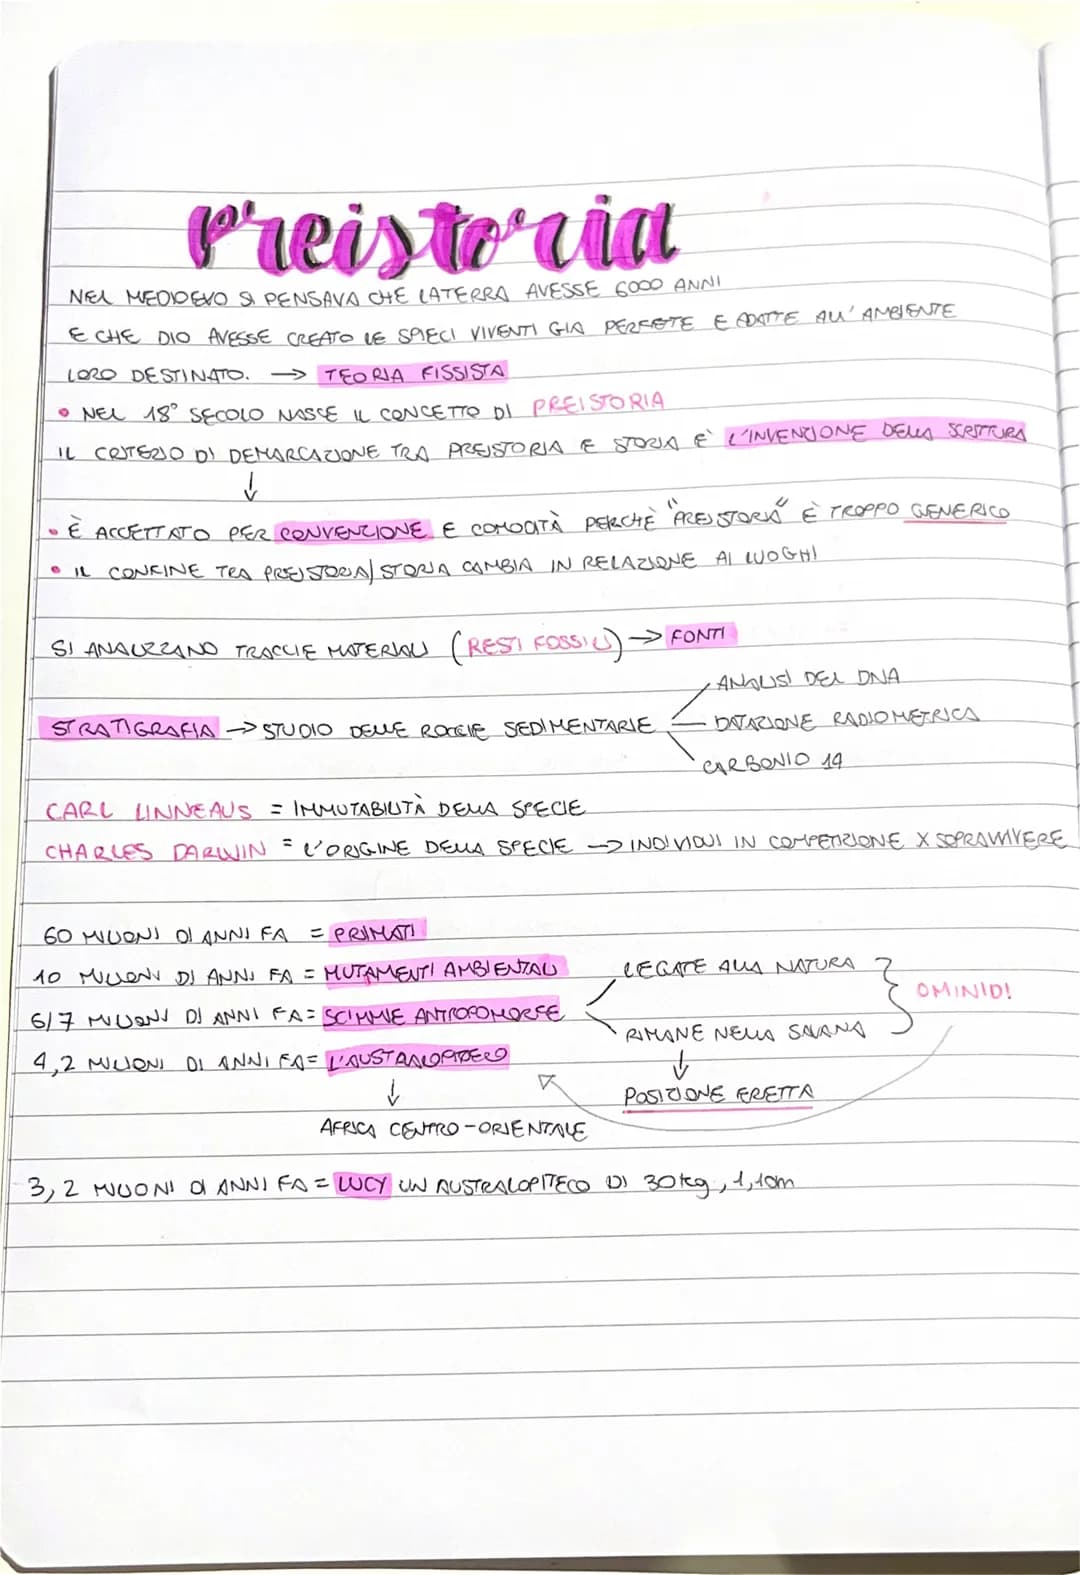 preistoria
NEL MEDIOEVO SI PENSAVA CHE LA TERRA AVESSE 6000 ANNI
E CHE DIO AVESSE CREATO LE SPIECI VIVENTI GIA PERFETTE E ADATTE ALL'AMBIENTE
LORO DESTINATO. → TEORIA FISSISTA
• NEL 18° SECOLO NASCE IL CONCETTO DI PREISTORIA
IL CRITERIO DI DEMARCAZIONE TRA PREISTORIA E STORIA E' L'INVENZIONE DELLA SCRITTURA
↓
• È ACCETTATO PER CONVENZIONE E COMODITÀ PERCHÈ "PREISTORIA" È TROPPO GENERICO
• IL CONFINE TRA PREISTORIA/STORIA CAMBIA IN RELAZIONE AI LUOGHI
SI ANALIZZANO TRACCIE MATERIALI (RESTI FOSSILI) → FONTI
ANALISI DEL DNA
STRATIGRAFIA → STUDIO DELLE ROCCIE SEDIMENTARIE DATAZIONE RADIOMETRICA
CARBONIO 14
CARL LINNEAUS = IMMUTABILITÀ DELLA SPECIE
CHARLES DARWIN = L'ORIGINE DELLA SPECIE → INDIVIDUI IN COMPETIZIONE X SOPRAVVIVERE
60 MILIONI DI ANNI FA = PRIMATI
10 MILIONI DI ANNI FA = MUTAMENTI AMBIENTALI LEGATE ALLA NATURA
6/7 MILIONI DI ANNI FA = SCIMMIE ANTROPOMORFE OMINIDI
RIMANE NELLA SAVANA
4,2 MILIONI DI ANNI FA = ↓
↓ POSIZIONE ERETTA
AFRICA CENTRO-ORIENTALE
3,2 MILIONI DI ANNI FA = LUCY UN AUSTRALOPITECO DI 30kg, 1,10m